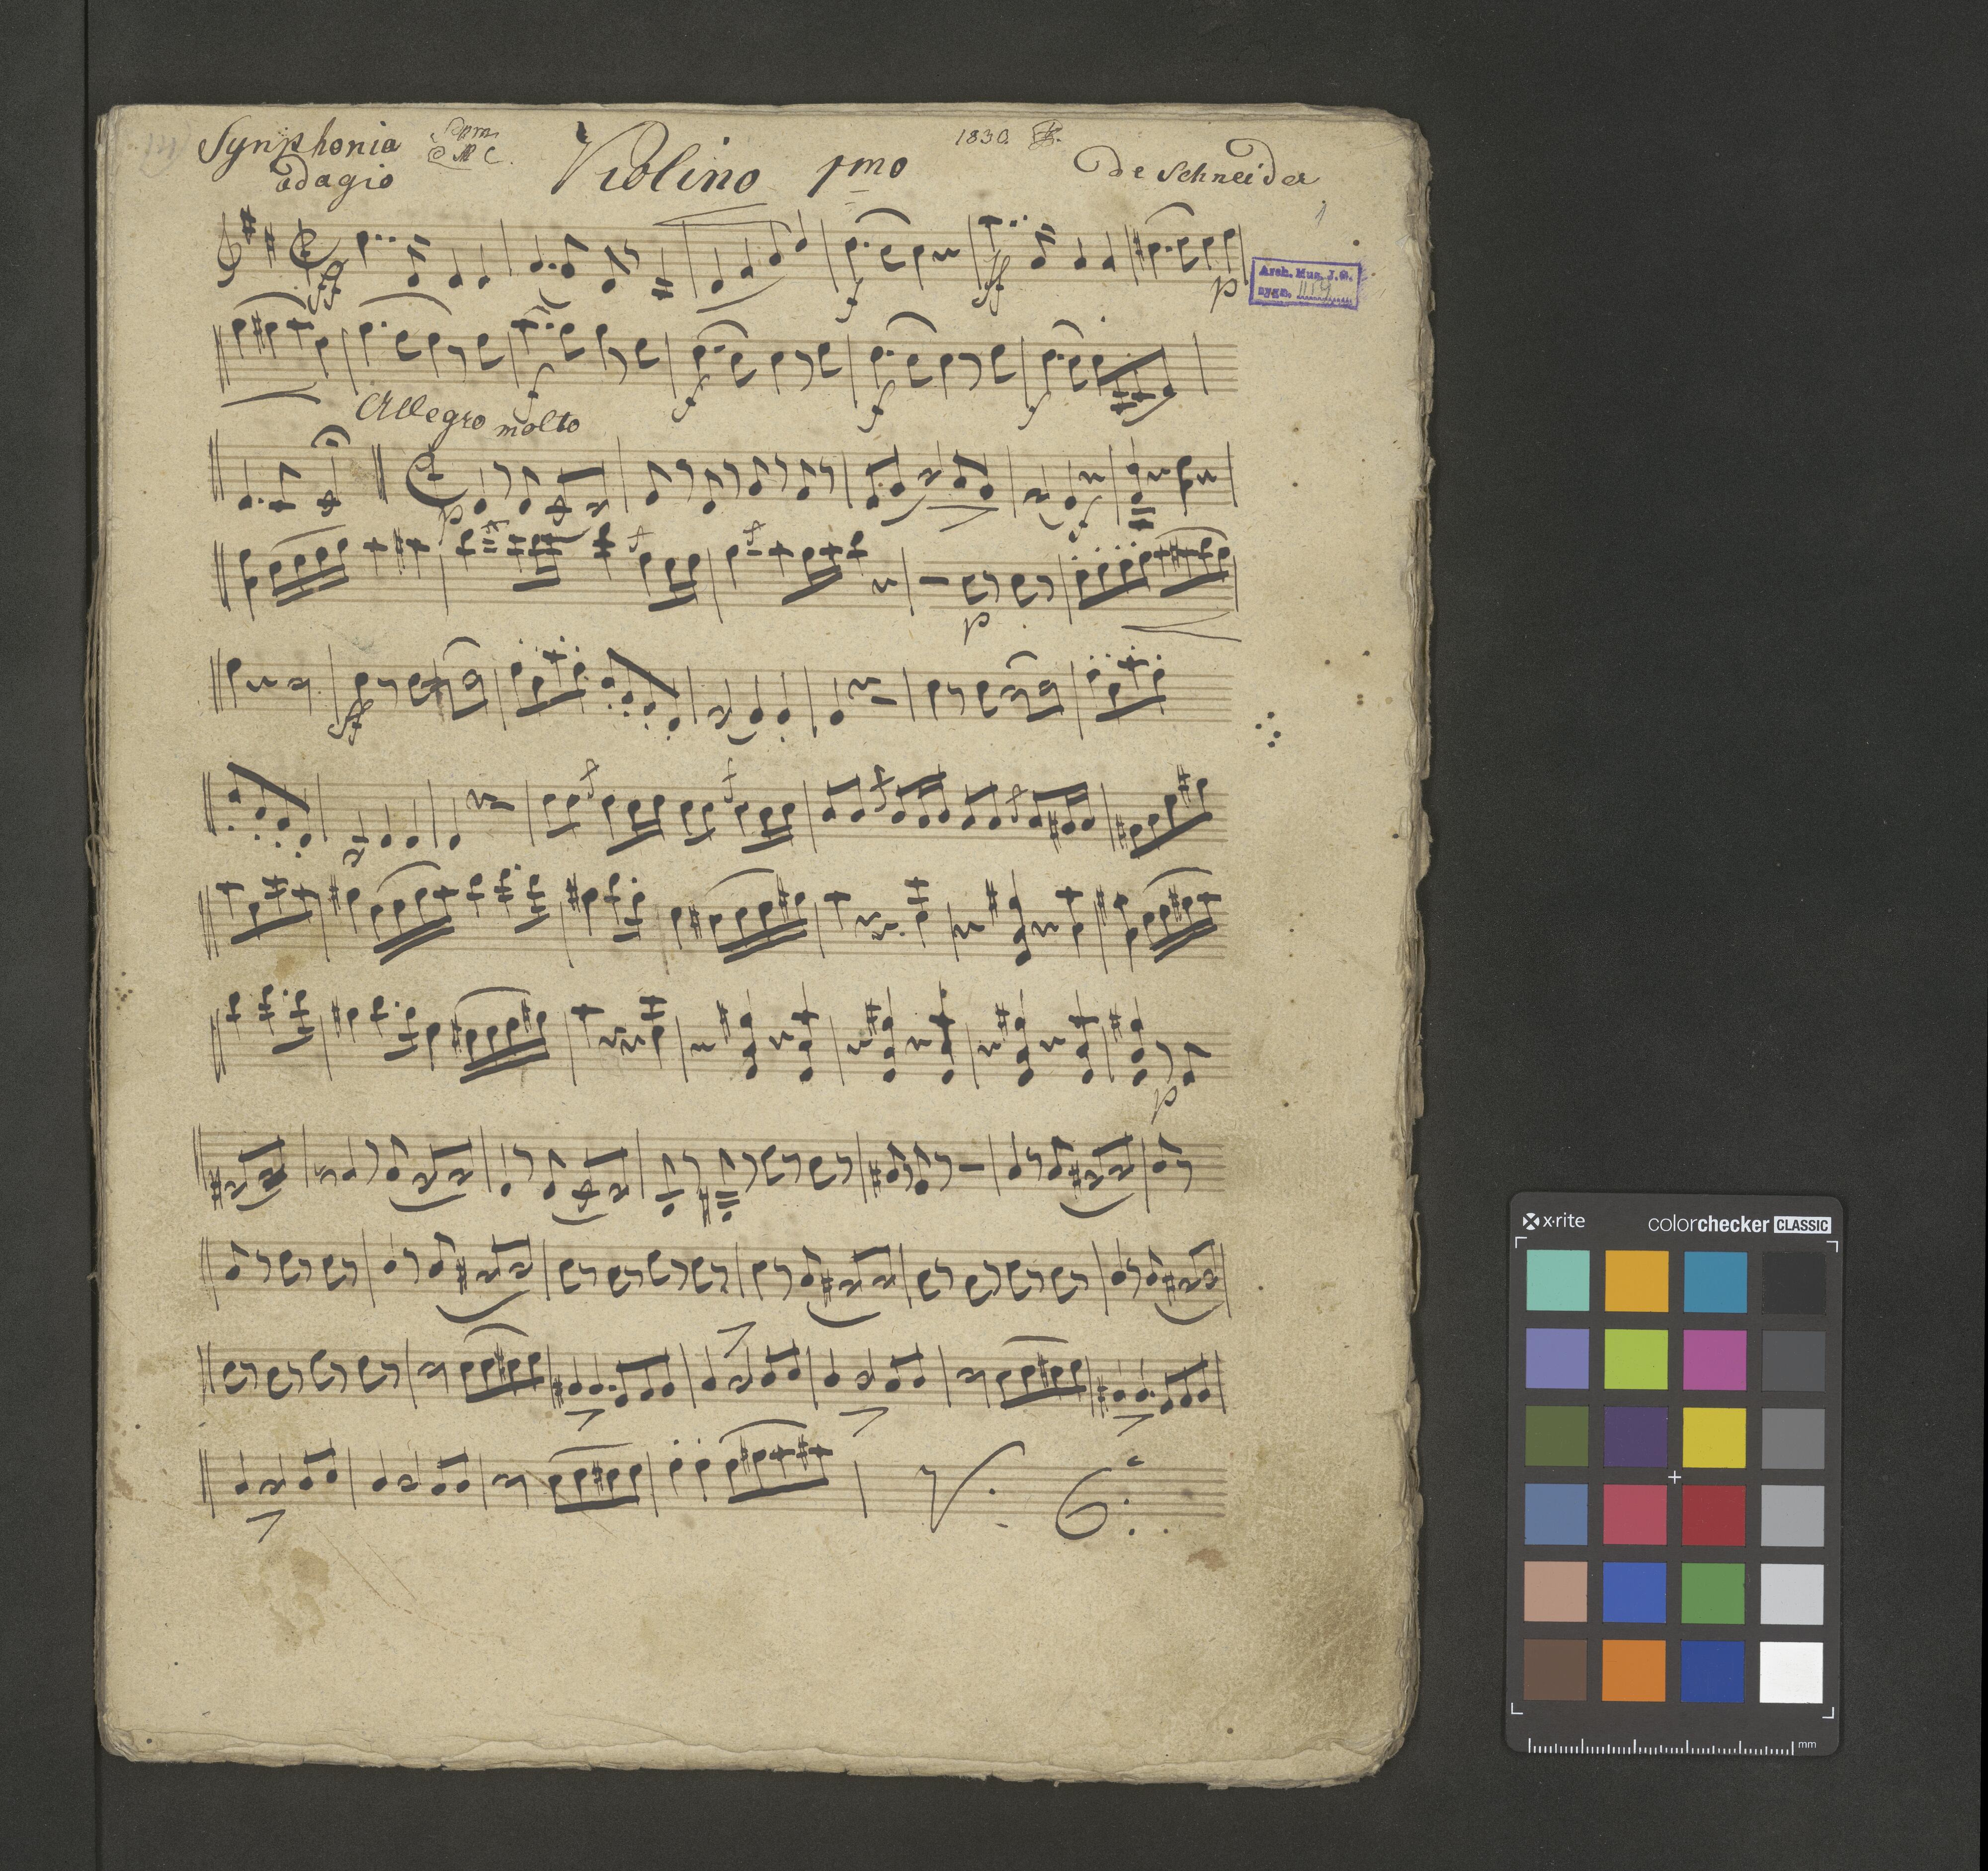 Synphonia
Adagio
Violino 1mo
1830
de Schneider
1
Arch. Mus. J. G.
sygn.
ff
f
ff
p
f
f
f
f
Allegro molto
p
f
f
f
f
p
ff
f
f
f
f
p
V.
x·rite
colorchecker CLASSIC
mm